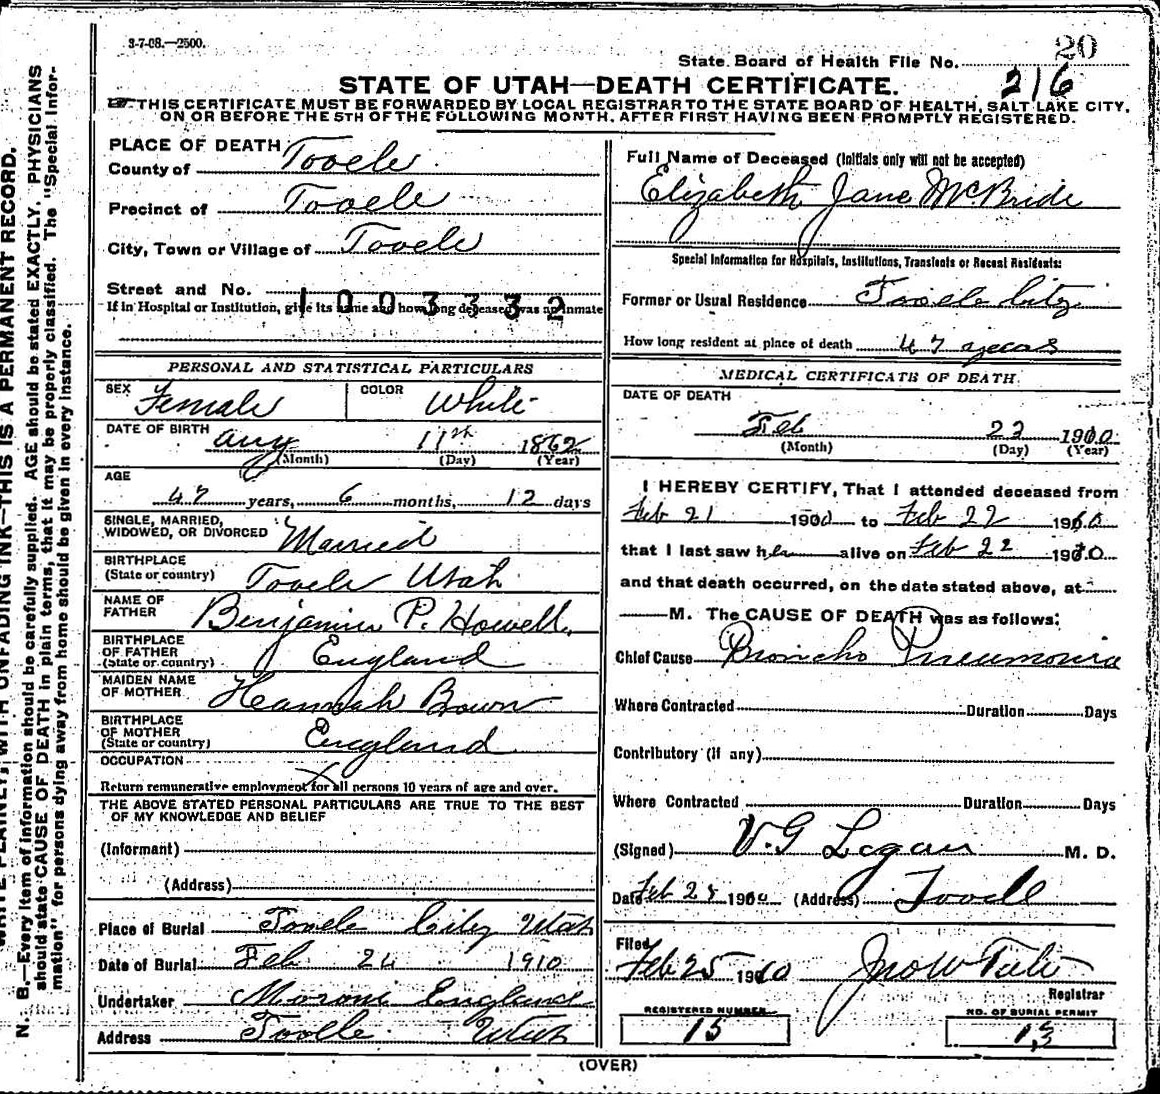 3-7-08.—2500.
20
State Board of Health File No. 216
STATE OF UTAH—DEATH CERTIFICATE.
THIS CERTIFICATE MUST BE FORWARDED BY LOCAL REGISTRAR TO THE STATE BOARD OF HEALTH, SALT LAKE CITY,
ON OR BEFORE THE 5TH OF THE FOLLOWING MONTH, AFTER FIRST HAVING BEEN PROMPTLY REGISTERED.
PLACE OF DEATH
County of Tooele
Precinct of Tooele
City, Town or Village of Tooele
Street and No.
1003332
If in Hospital or Institution, give its name and how long deceased was an inmate
PERSONAL AND STATISTICAL PARTICULARS
SEX Female COLOR White
DATE OF BIRTH Aug 11th 1862
(Month) (Day) (Year)
AGE
47 years, 6 months, 12 days
SINGLE, MARRIED,
WIDOWED, OR DIVORCED Married
BIRTHPLACE
(State or country) Tooele Utah
NAME OF
FATHER Benjamin P. Howell
BIRTHPLACE
OF FATHER
(State or country) England
MAIDEN NAME
OF MOTHER Hannah Bown
BIRTHPLACE
OF MOTHER
(State or country) England
OCCUPATION
Return remunerative employment for all persons 10 years of age and over.
THE ABOVE STATED PERSONAL PARTICULARS ARE TRUE TO THE BEST
OF MY KNOWLEDGE AND BELIEF
(Informant)
(Address)
Place of Burial Tooele City Utah
Date of Burial Feb 24 1910
Undertaker Moroni England
Address Tooele Utah
Full Name of Deceased (Initials only will not be accepted)
Elizabeth Jane McBride
Special Information for Hospitals, Institutions, Transients or Recent Residents:
Former or Usual Residence Tooele City
How long resident at place of death 47 years
MEDICAL CERTIFICATE OF DEATH
DATE OF DEATH
Feb 23 1910
(Month) (Day) (Year)
I HEREBY CERTIFY, That I attended deceased from
Feb 21 1910 to Feb 22 1910
that I last saw her alive on Feb 22 1910
and that death occurred, on the date stated above, at
M. The CAUSE OF DEATH was as follows:
Chief Cause Broncho Pneumonia
Where Contracted Duration Days
Contributory (if any)
Where Contracted Duration Days
(Signed) Logan M. D.
Date Feb 1910 (Address) Tooele
Filed
Feb 25 1910 Jno W Tate
Registrar
REGISTERED NUMBER
15
NO. OF BURIAL PERMIT
13
(OVER)
N. B.—Every item of information should be carefully supplied. AGE should be stated EXACTLY. PHYSICIANS
should state CAUSE OF DEATH in plain terms, that it may be properly classified. The "Special Infor-
mation" for persons dying away from home should be given in every instance.
WRITE PLAINLY, WITH UNFADING INK—THIS IS A PERMANENT RECORD.